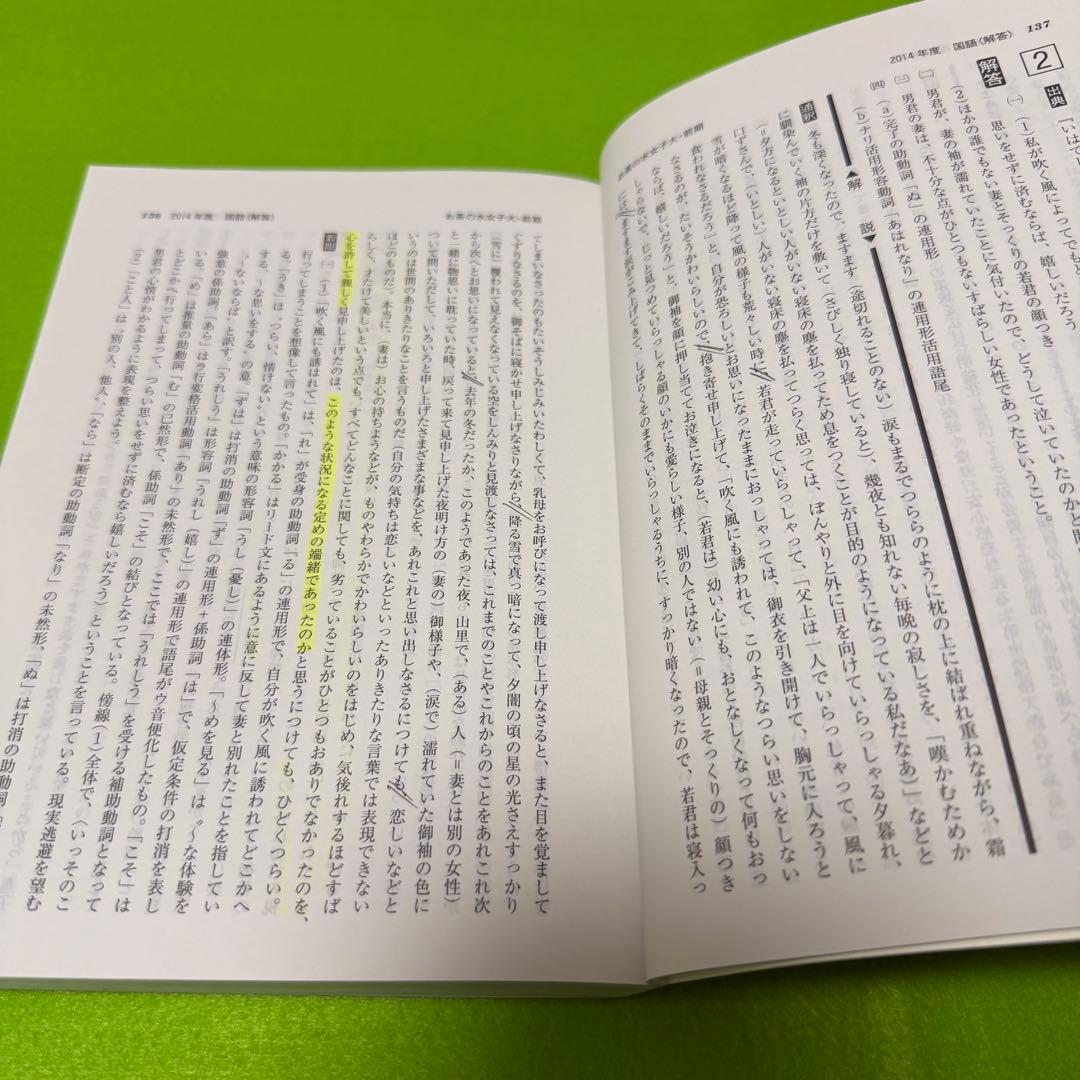 2014年度 国語〈解答〉 137
2
出典
解答
(一) (1)私が吹く風によって
思いをせずに済むならば、嬉しいだろう
(2)ほかの誰でもない妻とそっくりの若君の顔つき
(二) 男君が、妻の袖が濡れていたことに気付いたので、どうして泣いていたのかと
(三) 男君の妻は、不十分な点がひとつもないすばらしい女性であったということ。
(四) (a)完了の助動詞「ぬ」の連用形
(b)ナリ活用形容動詞「あはれなり」の連用形活用語尾
▲解 説▼
通釈 冬も深くなったので、ますます(途切れることのない)涙もまるでつららのように枕の上に結ばれ重ねながら、霜
に馴染んでいく袖の片方だけを敷いて(さびしく独り寝していると)、幾夜とも知れない毎晩の寂しさを、「嘆かむためか
(=夕方になるといとしい人がいない寝床の塵を払ってため息をつくことが目的のようになっている私だなあ)」などと
口ずさんで、(いとしい)人がいない寝床の塵を払ってつらく思っては、ぼんやりと外に目を向けていらっしゃる夕暮れ、
雪が暗くなるほど降って風の様子も荒々しい時に、若君が走っていらっしゃって、「父上は一人でいらっしゃって、風に
食われなさるだろう」と、自分が恐ろしいとお思いになったままにおっしゃっては、御衣を引き開けて、胸元に入ろうと
なさるのが、たいそうかわいらしいので、抱き寄せ申し上げて、「吹く風にも誘われて、このようなつらい思いをしない
ならば、嬉しいだろう」と、御袖を顔に押し当ててお泣きになると、(若君は)幼い心にも、おとなしくなって何もおっ
しゃらないで、じっと見つめていらっしゃる顔のいかにも愛らしい様子、別の人ではない(=母親とそっくりの)顔つき
に、ますます涙がこみ上げてきて、しばらくそのままでいらっしゃるうちに、すっかり暗くなったので、若君は寝入っ
お茶の水女子大-前期
136 2014年度 国語〈解答〉
お茶の水女子大-前期
てしまいなさったのもたいそうしみじみいたわしくて、乳母をお呼びになって渡し申し上げなさると、また目を覚まして
ぐずりなさるのを、御そばに寝かせ申し上げなさりながら、降る雪で真っ暗になって、夕闇の頃の星の光さえすっかり
(雪に)覆われて見えなくなっている空をしんみりと見渡しなさっては、これまでのことやこれからのことをあれこれ次
から次へとお思いになっていると、去年の冬だったか、このようであった夜、山里で、(ある)人(=妻とは別の女性)
と一緒に物思いに耽っていた時、戻って来て見申し上げた夜明け方の(妻の)御様子や、(涙で)濡れていた御袖の色に
ついて問いただして、いろいろと申し上げたさまざまな事などを、あれこれと思い出しなさるにつけても、恋しいなどと
いうのは世間のありきたりなことを言うものだ(自分の気持ちは恋しいなどといったありきたりな言葉では表現できない
ほどのものだ)、本当に、(妻は)お心の持ちようなどが、ものやわらかでかわいらしいのをはじめ、気後れするほどすば
らしく、才たけて美しいという点でも、すべてどんなことに関しても、劣っていることがひとつもおありでなかったのを、
心を許して親しく見申し上げたのは、このような状況になる定めの端緒であったのかと思うにつけても、ひどくつらい。
(一) (1)「吹く風にも誘われて」は、「れ」が受身の助動詞「る」の連用形で、自分が吹く風に誘われてどこかへ
行ってしまうことを想像して言ったもの。「かかる」はリード文にあるように意に反して妻と別れたことを指してい
る。「うき」は、〝つらい、情けない〟という意味の形容詞「うし(憂し)」の連体形。「〜めを見る」は〝〜な体験を
する、〜な思いをする〟の意。「ずは」は打消の助動詞「ず」の連用形+係助詞「は」で、仮定条件の打消を表し
〝〜ないならば〟と訳す。「うれしう」は形容詞「うれし(嬉し)」の連用形で語尾がウ音便化したもの。「こそ」は
強意の係助詞。「あら」はラ行変格活用動詞「あり」の未然形で、ここでは「うれしう」を受ける補助動詞となって
いる。「め」は推量の助動詞「む」の已然形で、係助詞「こそ」の結びとなっている。傍線(1)全体で、〈いっそのこ
とどこかへ行ってしまって、つらい思いをせずに済むなら嬉しいだろう〉ということを言っている。現実逃避を望む
男君の心情がわかるように表現を整えよう。
(2)「こと人」は〝別の人、他人〟、「なら」は断定の助動詞「なり」の未然形、「ぬ」は打消の助動詞